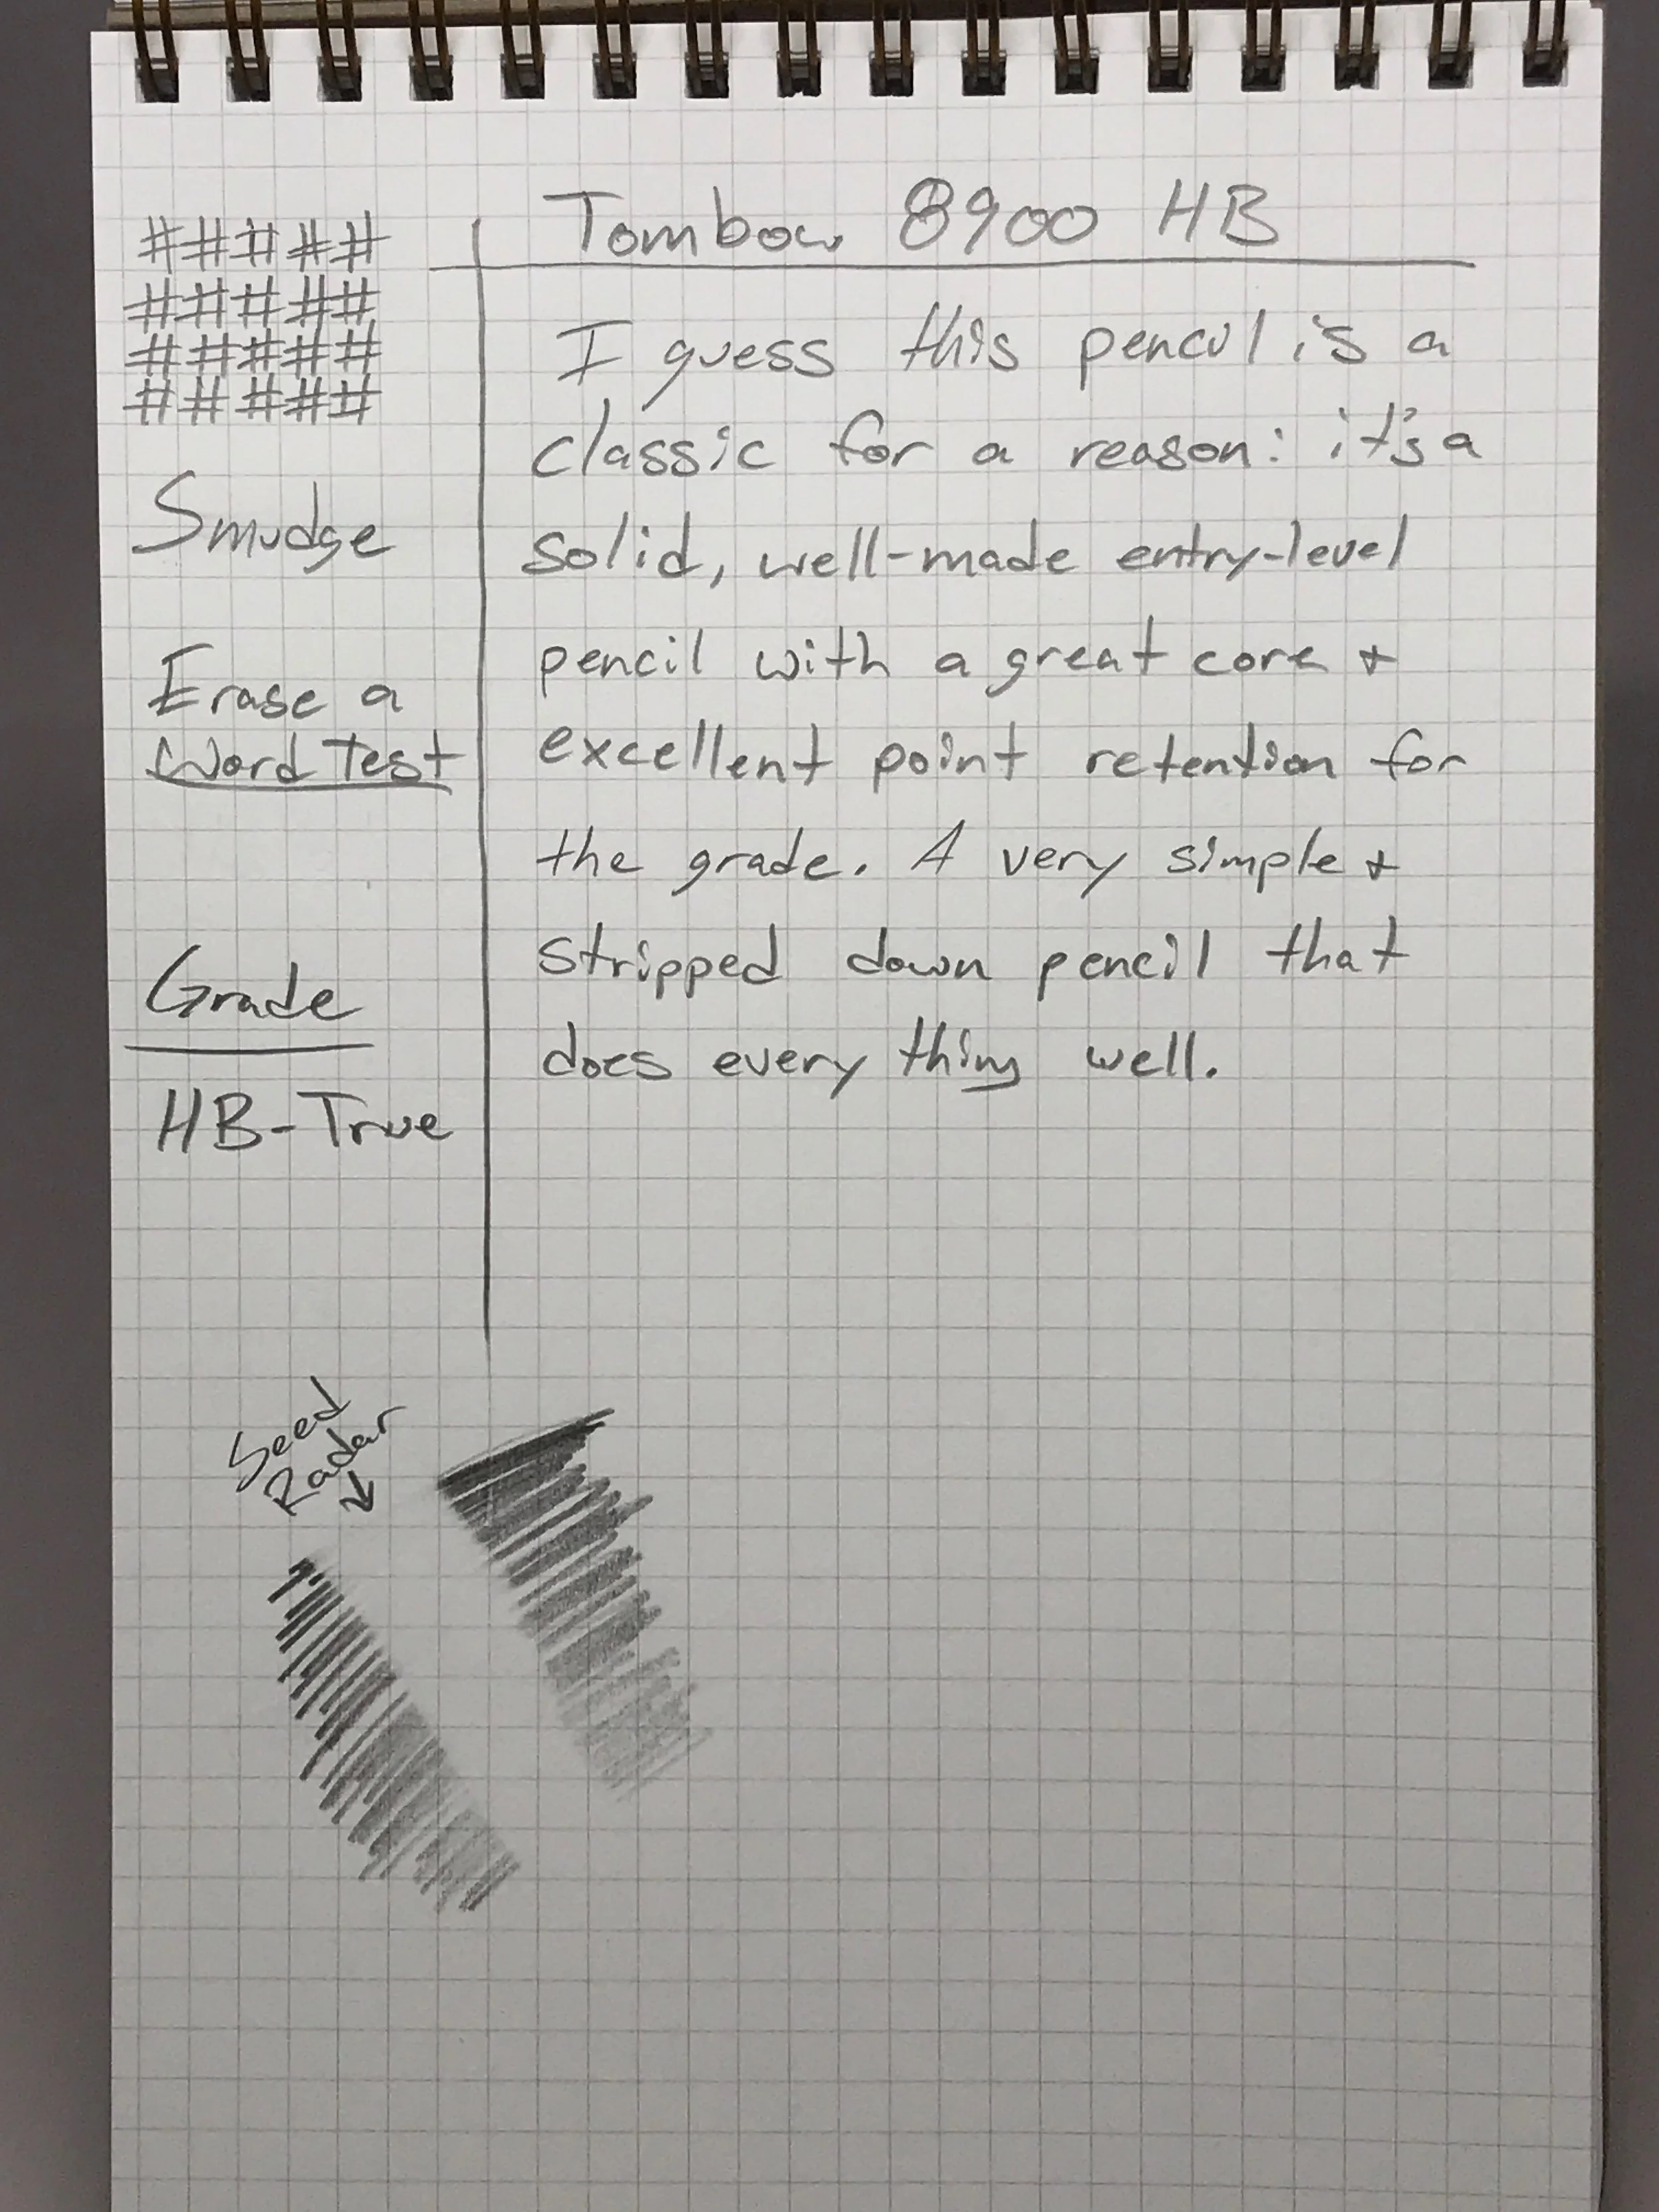 # # # # #
# # # # #
# # # # #
# # # # #
Smudge
Erase a
Word Test
Grade
HB-True
Tombow 8900 HB
I guess this pencil is a
classic for a reason: it's a
solid, well-made entry-level
pencil with a great core +
excellent point retention for
the grade. A very simple +
stripped down pencil that
does every thing well.
Seed
Radar
↓